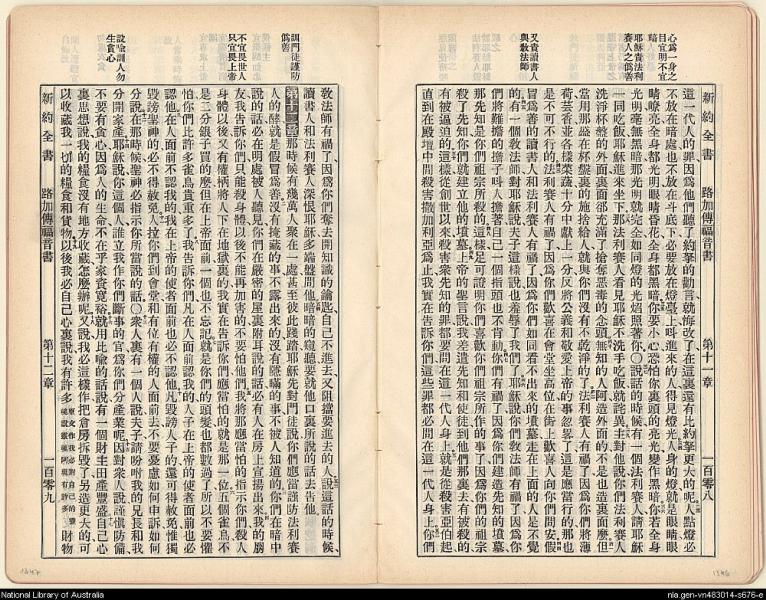 心爲一身之
目宜明不宜
暗
耶穌責法利
賽人之僞善
又責讀書人
與教法師
新約全書 路加傳福音書 第十一章 一百零八
這一代人的罪因爲他們聽了約拿的勸言就悔改了在這裏還有比約拿更大的呢人點燈必
不放在暗處也不放在斗底下必要放在燈臺上呌進來的人得見燈光人身的燈就是眼睛眼
睛嘹亮全身都光明眼睛昏花全身都黑暗你要小心恐怕你裏頭的亮光變作黑暗你若全身
光明毫無黑暗那光明就完全如同燈的光㷔照著你○說話的時候有一個法利賽人請耶穌
一同吃飯耶穌進來坐下那法利賽人看見耶穌不洗手吃飯就詫異主對他說你們法利賽人
洗淨杯盤的外面裏面卻充滿了搶奪惡毒的念頭無知的人阿造外面的不是也造裏面麽但
當用那盛在杯盤裏的施捨給人就與你們沒有不乾淨的了法利賽人有禍了因爲你們將薄
荷芸香並各樣菜蔬十分中獻上一分反將公義和敬愛上帝的事忽畧了這是應當行的那也
是不可不行的法利賽人有禍了因爲你們歡喜在會堂坐高位在街上歡喜人向你們問安假
冒爲善的讀書人和法利賽人有禍了因爲你們如同看不出來的墳墓走在上面的人是不覺
的有一個教法師對耶穌說夫子這樣說也羞辱了我們了耶穌說你們教法師有禍了因爲你
們將難擔的擔子呌人擔著自己一個指頭也不肯動你們有禍了因爲你們建造先知的墳墓
那先知是你們祖宗所殺的這樣足可證明你們喜歡你們祖宗所作的事了因爲你們的祖宗
殺了先知你們就建立他的墳墓上帝的聖言說我差遣先知和使徒到他們那裏去有被殺的
有被逼迫的這樣從創世以來殺害衆先知的罪都要問在這一代人身上就是從殺害亞伯起
直到在殿壇中間殺害撒加利亞爲止我實在告訴你們這些罪都必問在這一代人身上你們
訓門徒謹防
僞善
不宜畏世人
只宜畏上帝
設喩訓人勿
生貪心
教法師有禍了因爲你們奪去開知識的鑰匙自己不進去又阻擋要進去的人說這話的時候
讀書人和法利賽人深恨耶穌多端盤問他暗暗的窺聽要就他口裏所說的話去告他
第十二章 那時候有幾萬人聚在一處甚至彼此踐踏耶穌先對門徒說你們應當謹防法利賽
人的酵就是假冒爲善沒有掩藏的事不露出來的沒有隱瞞的事不被人知道的你們在暗中
說的話必在明處被人聽見你們在嚴密的屋裏附耳說的話必有人在房上宣揚出來我的朋
友我告訴你們只能殺身體以後不能再加害的不要怕他們我將那應當怕的指示你們殺人
身體以後又有權柄將人下在地獄裏的我實在告訴你們應當怕的就是那一位五個雀鳥不
是二分銀子買的麽但在上帝面前一個也不忘記就是你們的頭髮也都數過了所以不要懼
怕你們比許多雀鳥貴重多了我告訴你們凡在人面前認我的人子在上帝的使者面前也必
認他在人面前不認我的我在上帝的使者面前也必不認他凡毀謗人子的還可得赦免惟獨
毀謗聖神的必不得赦免人拉你們到會堂和有位有權的人面前去不要憂慮如何申訴如何
分說在那時候聖神必指示你所當說的話○衆人裏有一個人說夫子請吩咐我的兄長和我
分開家產耶穌說你這個人誰立我作你們斷事的官爲你們分產業呢因對衆人說謹愼防備
不要有貪心因爲人的生命不在乎家資寬裕就用比喩的話說有一個財主田產豐盛自己心
裏思想說我的糧食沒有地方收藏怎麽辦呢又說我必這樣作把倉房拆毀了另造更大的可
以收藏我一切的糧食和貨物以後我必自己心裏說我有許多財物
新約全書 路加傳福音書 第十二章 一百零九
National Library of Australia
nla.gen-vn483014-s676-e